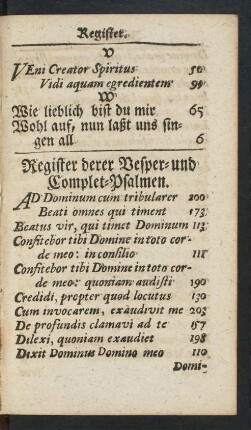 Register.
V
VEni Creator Spiritus 50
Vidi aquam egredientem 99
W
Wie lieblich bist du mir 65
Wohl auf, nun laßt uns sin-
gen all 6
Register derer Vesper- und
Complet-Psalmen.
AD Dominum cum tribularer 200
Beati omnes qui timent 173
Beatus vir, qui timet Dominum 113
Confitebor tibi Domine in toto cor-
de meo: in consilio 111
Confitebor tibi Domine in toto cor-
de meo: quoniam audisti 190
Credidi, propter quod locutus 130
Cum invocarem, exaudivit me 203
De profundis clamavi ad te 157
Dilexi, quoniam exaudiet 198
Dixit Dominus Domino meo 110
Domi-